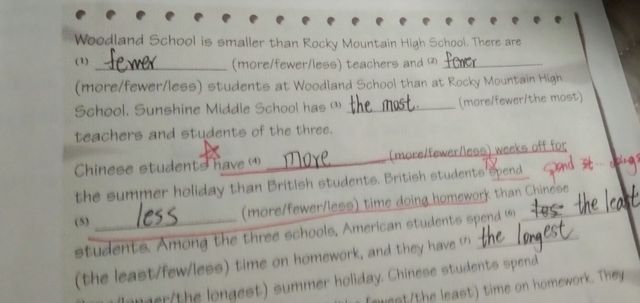 Woodland School is smaller than Rocky Mountain High School. There are
(1) fewer (more/fewer/less) teachers and (2) fewer
(more/fewer/less) students at Woodland School than at Rocky Mountain High
School. Sunshine Middle School has (3) the most. (more/fewer/the most)
teachers and students of the three.
Chinese students have (4) more (more/fewer/less) weeks off for
the summer holiday than British students. British students spend spend st. doing
(5) less (more/fewer/less) time doing homework than Chinese
students. Among the three schools, American students spend (6) the least
(the least/few/less) time on homework, and they have (7) the longest
/the longest) summer holiday. Chinese students spend
/the least) time on homework. They